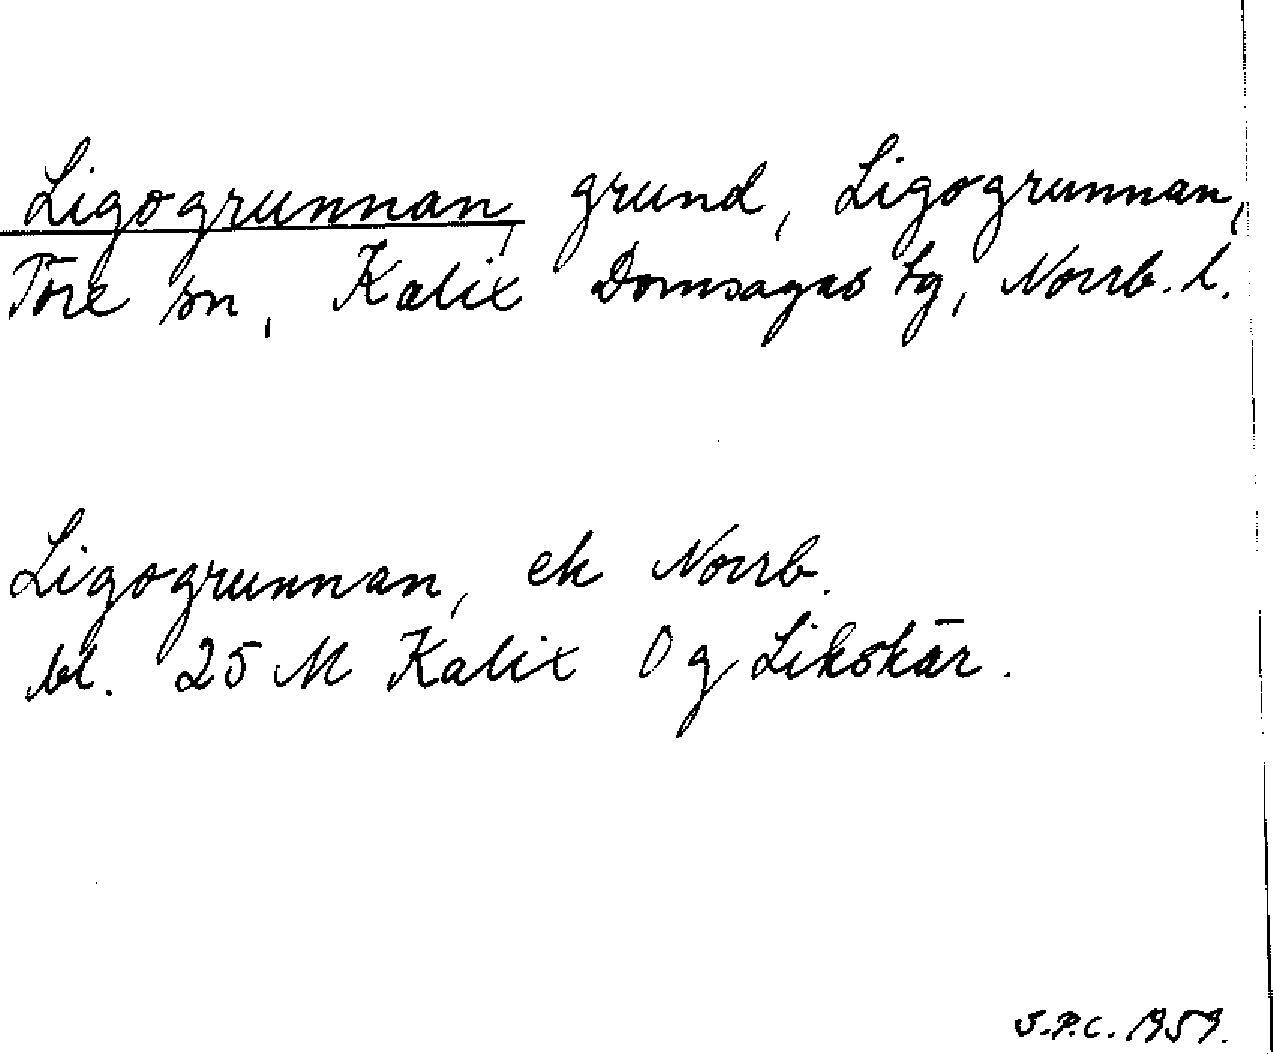 Ligogrunnan, grund, Ligogrunnan,
Töre sn, Kalix Domsagas tg, Norrb. l.
Ligogrunnan, ek Norrb.
bl. 25 M Kalix O g Likskär.
J.P.C. 1959.